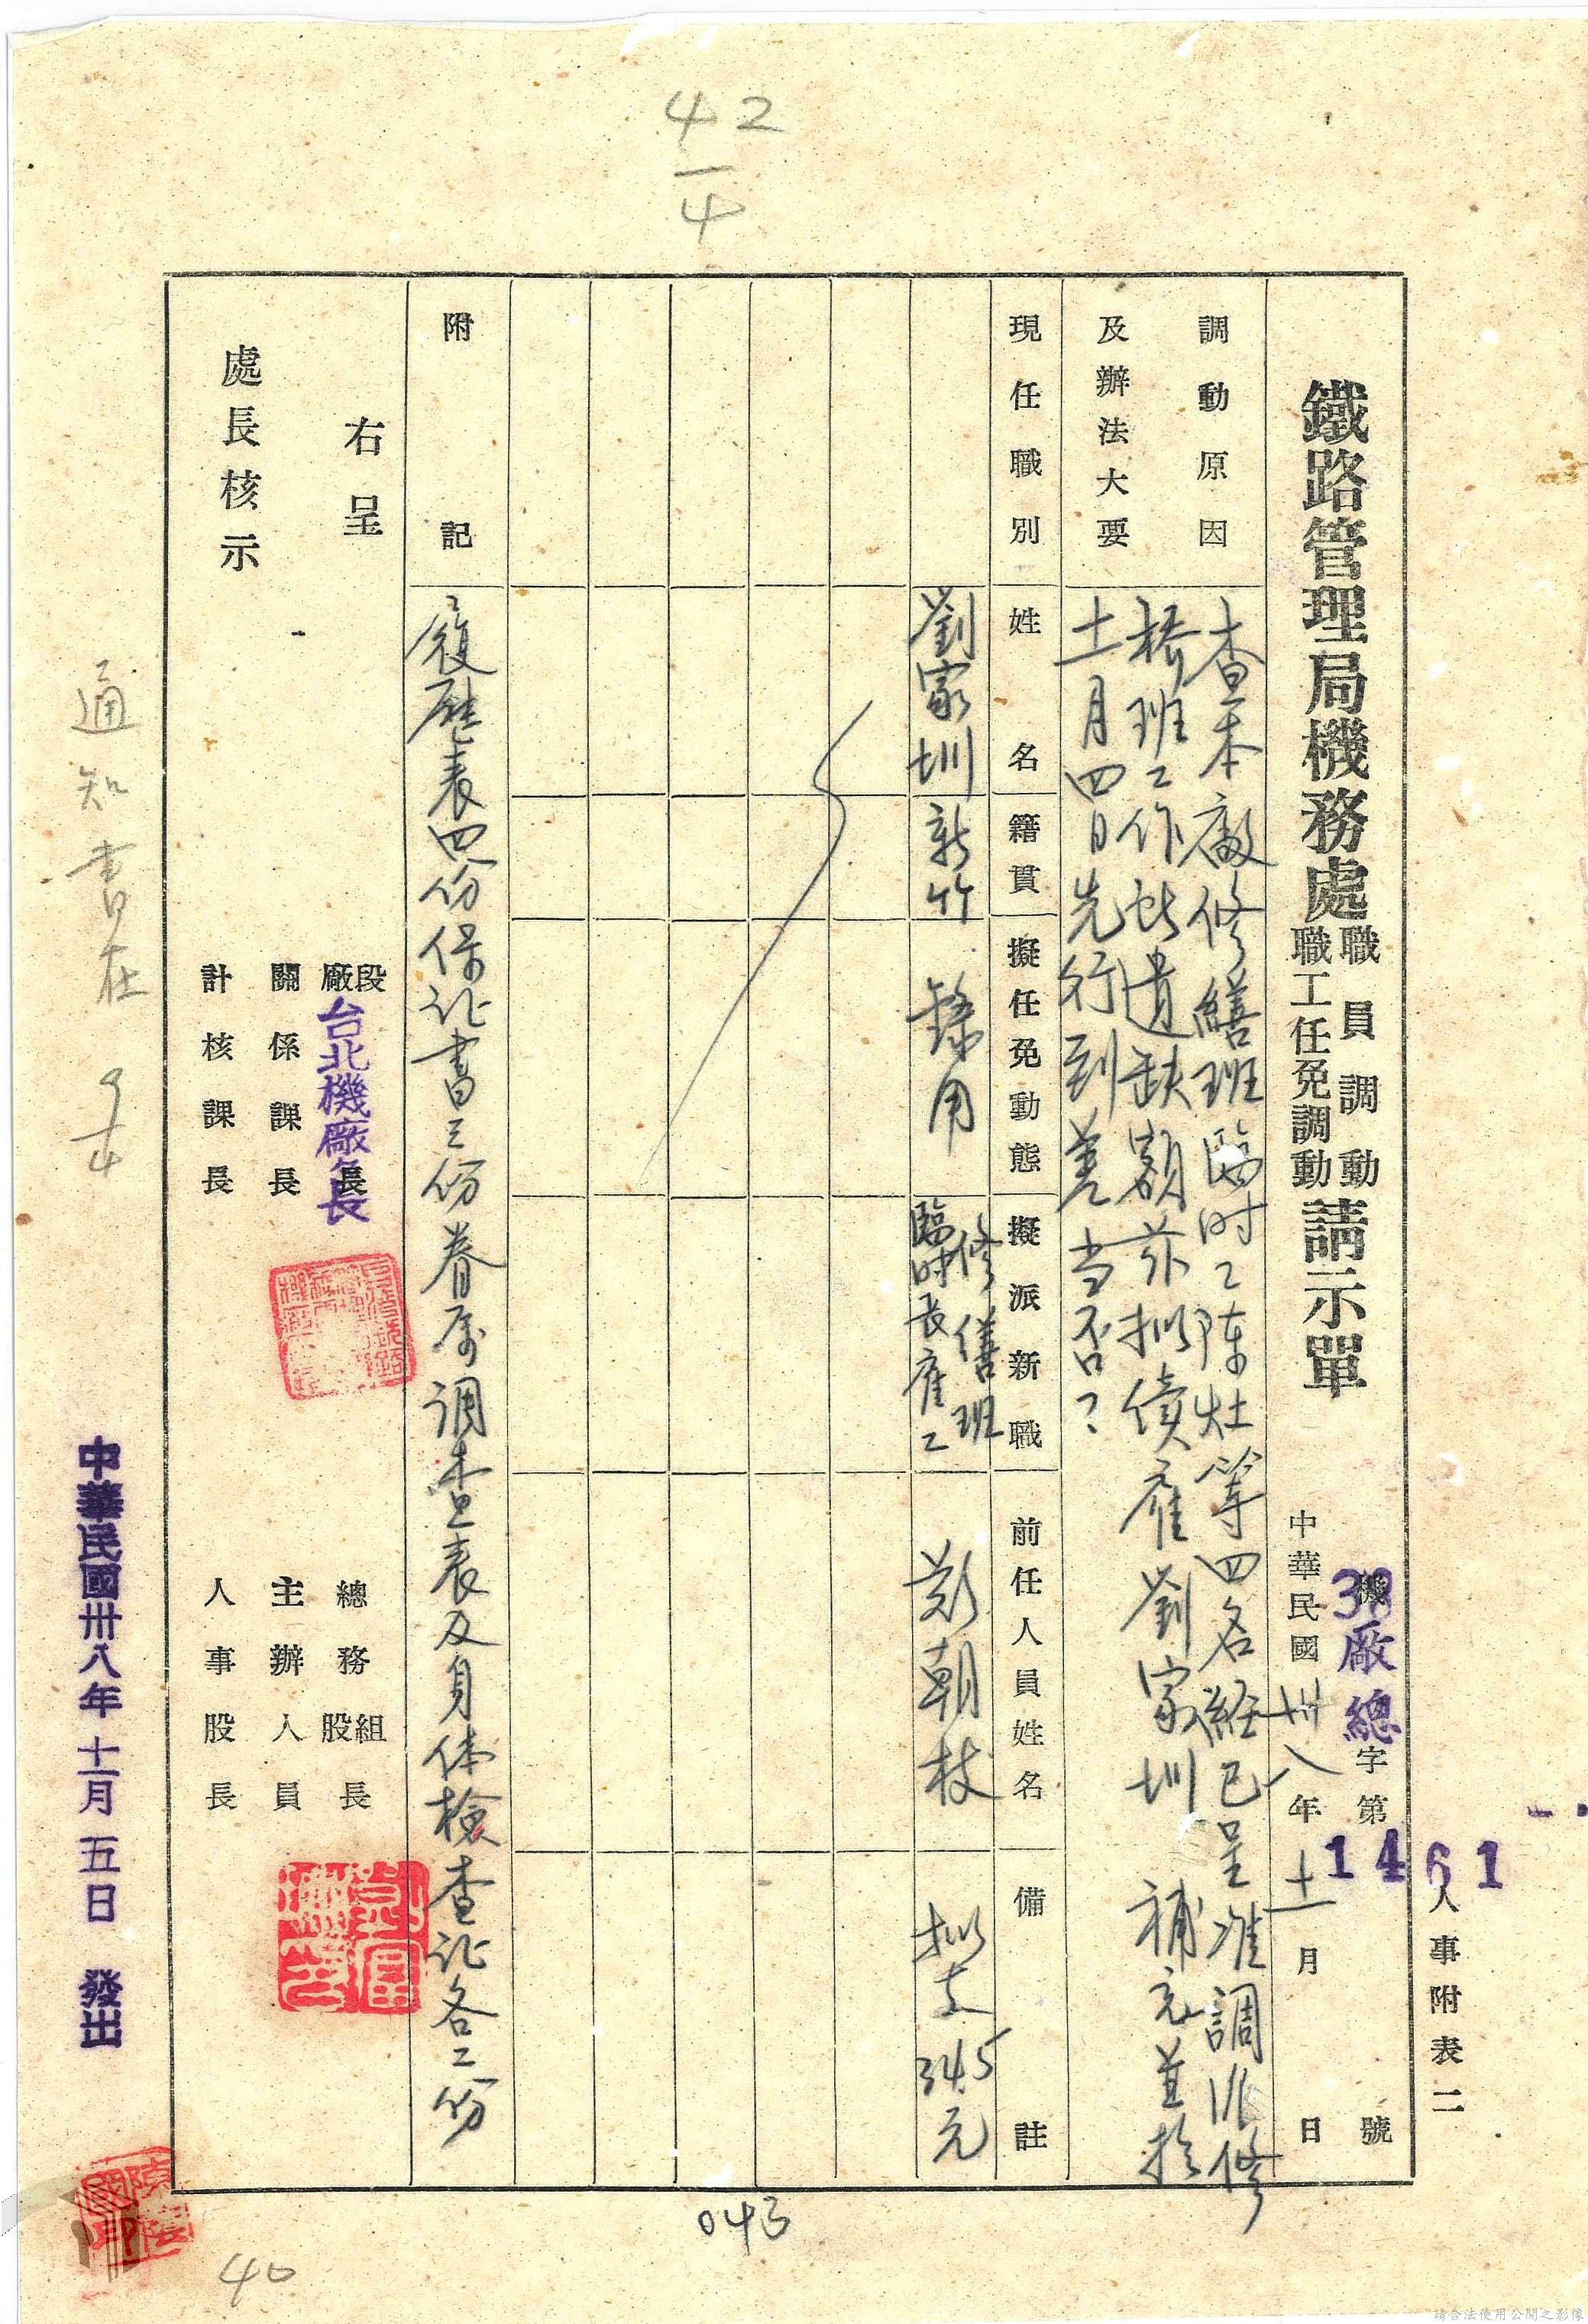 42
1
4
人事附表二
鐵路管理局機務處
職員調動
職工任免調動
請示單
機
38廠總
字第
1461
號
中華民國卅八年十一月 日
調動原因
及辦法大要
查本廠修繕班臨時工陳灶等四名経已呈准調派修
橋班工作所遺缺額茲拟續雇劉家圳 補充並於
十一月四日先行到差当否?
現任職別
姓名
籍貫
擬任免動態
擬派新職
前任人員姓名
備註
劉家圳
新竹
錄用
修繕班
臨時長雇工
鄭朝枝
拟支345元
附記
履歷表四份保证書三份眷属調查表及身体檢查证各二份
右呈
段
廠
長
台北機廠長
總務
組
股
長
關係課長
主辦人員
處長核示
計核課長
人事股長
通知書在
9/4
中華民國卅八年十一月五日 發出
043
40
請合法使用公開之影像